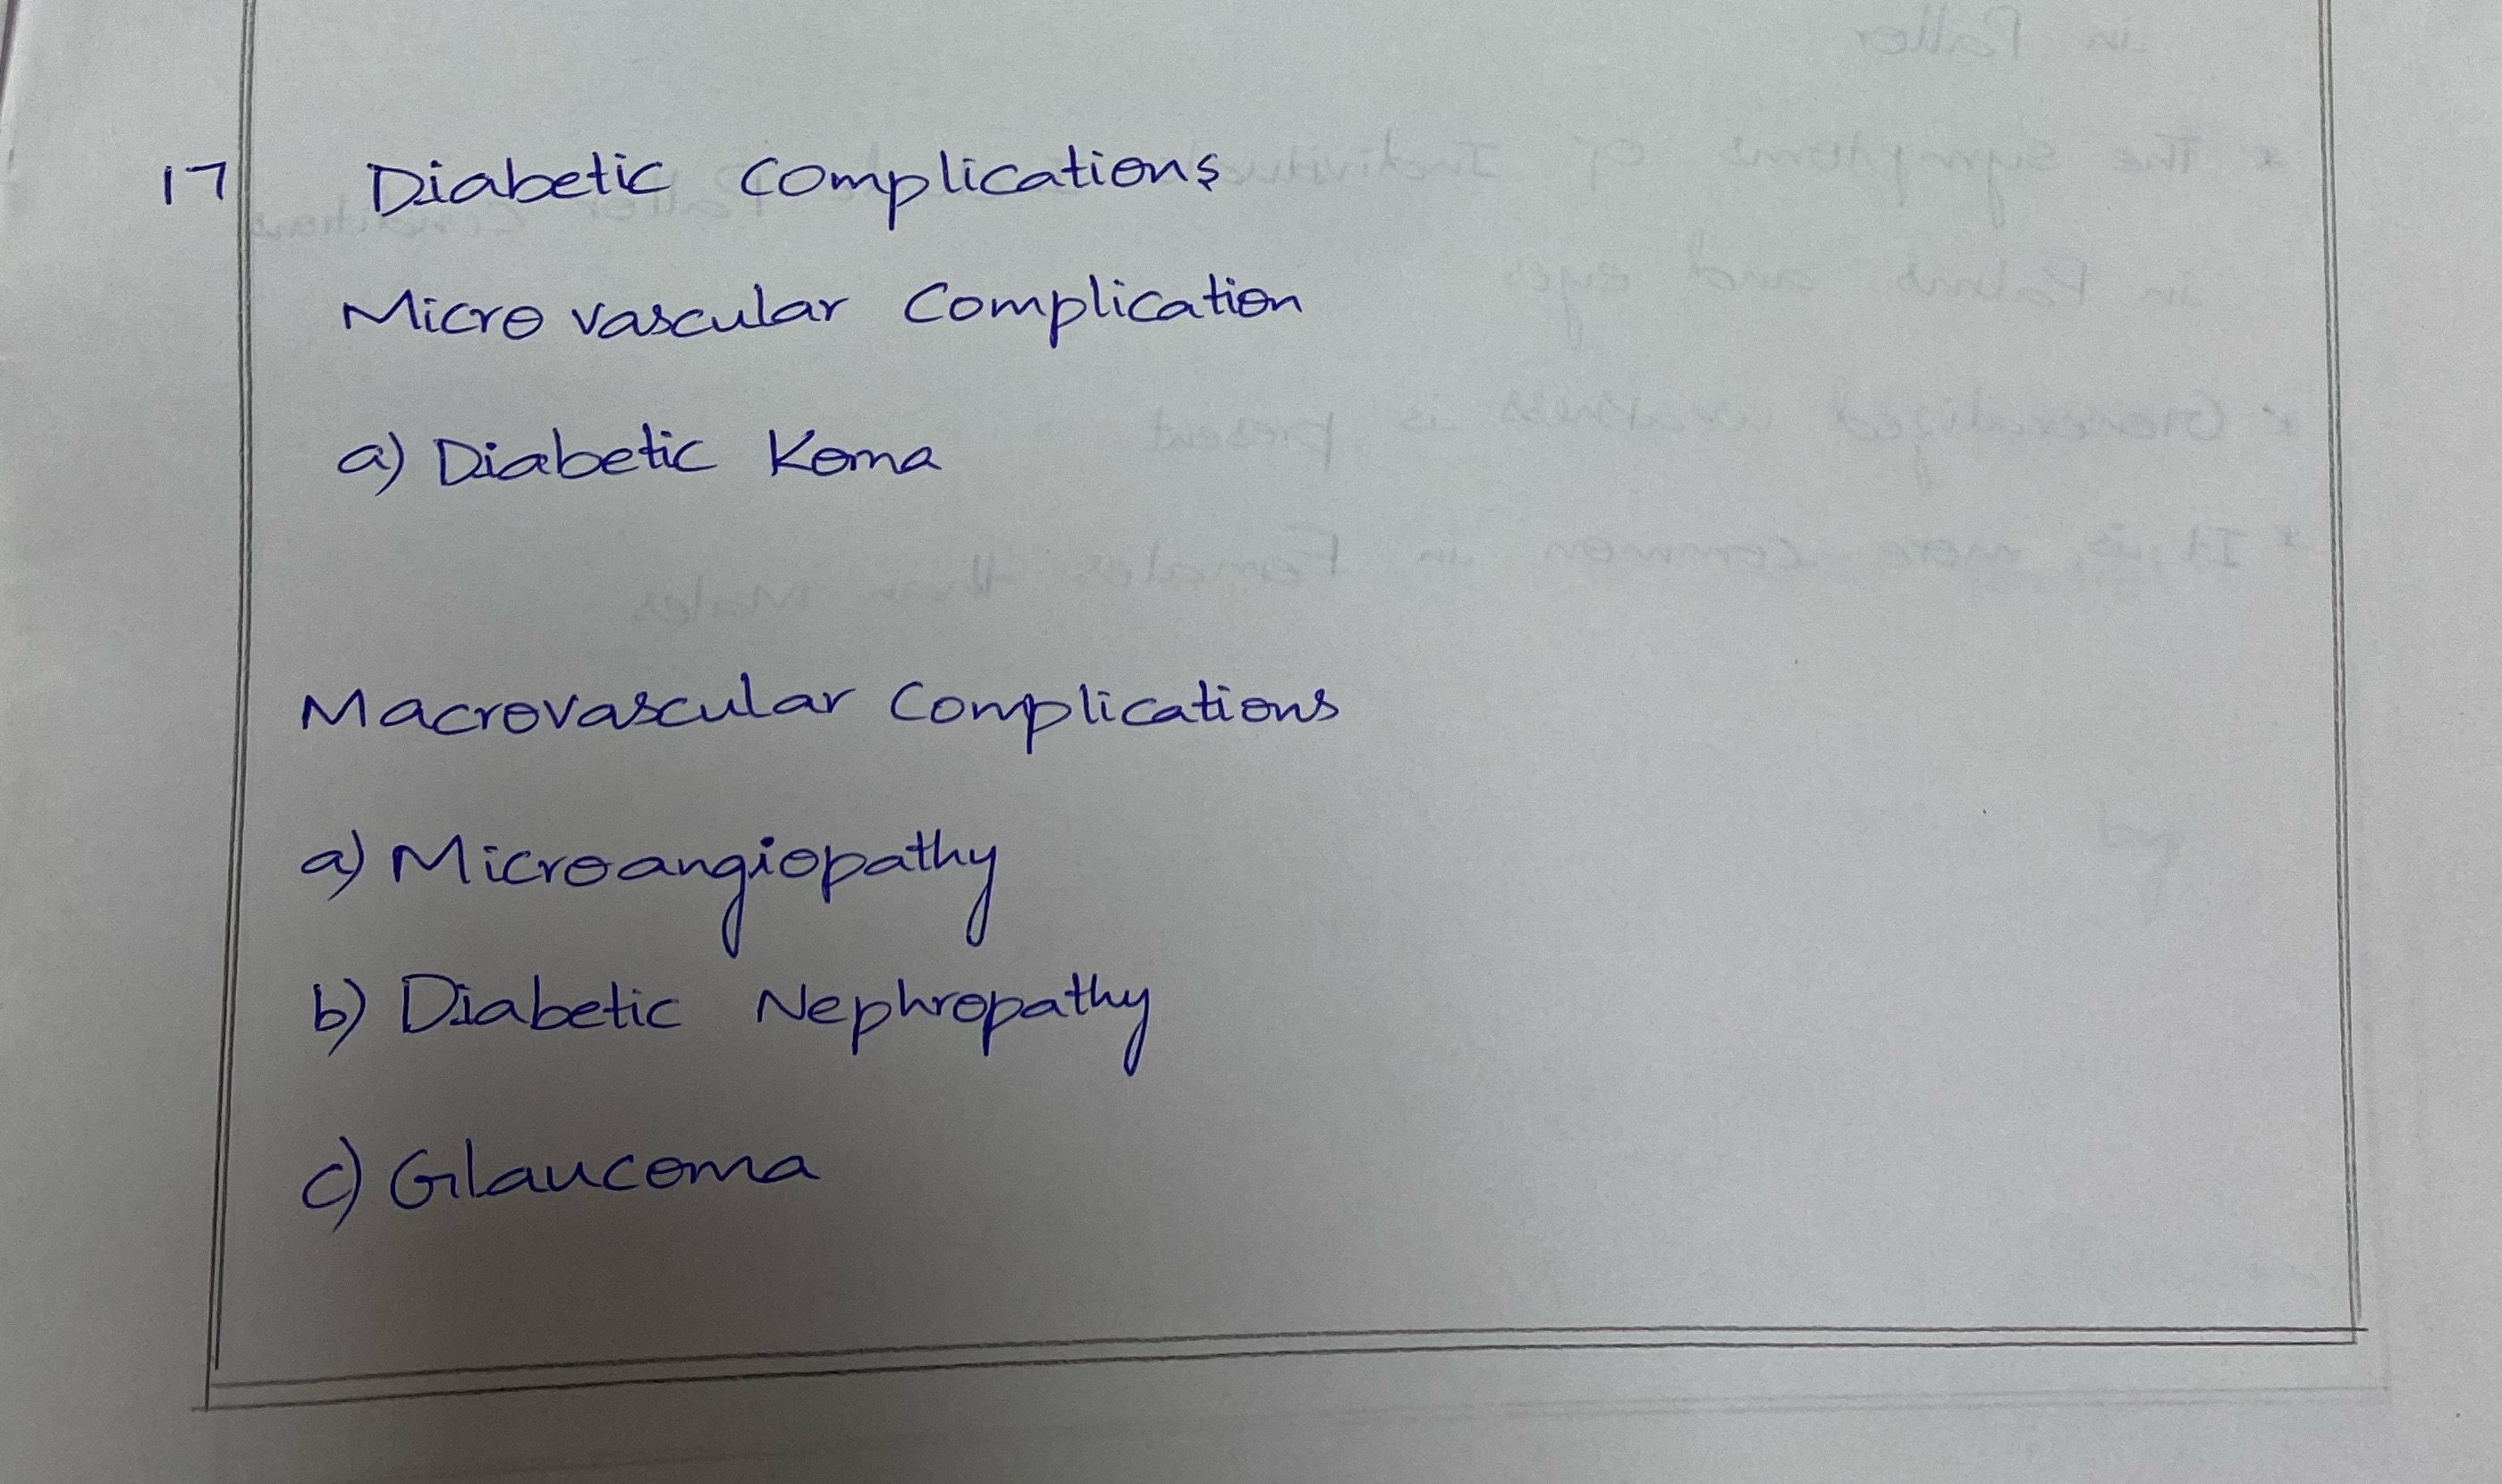 17 Diabetic Complications
Micro vascular Complication
a) Diabetic Koma
Macrovascular Complications
a) Microangiopathy
b) Diabetic Nephropathy
c) Glaucoma